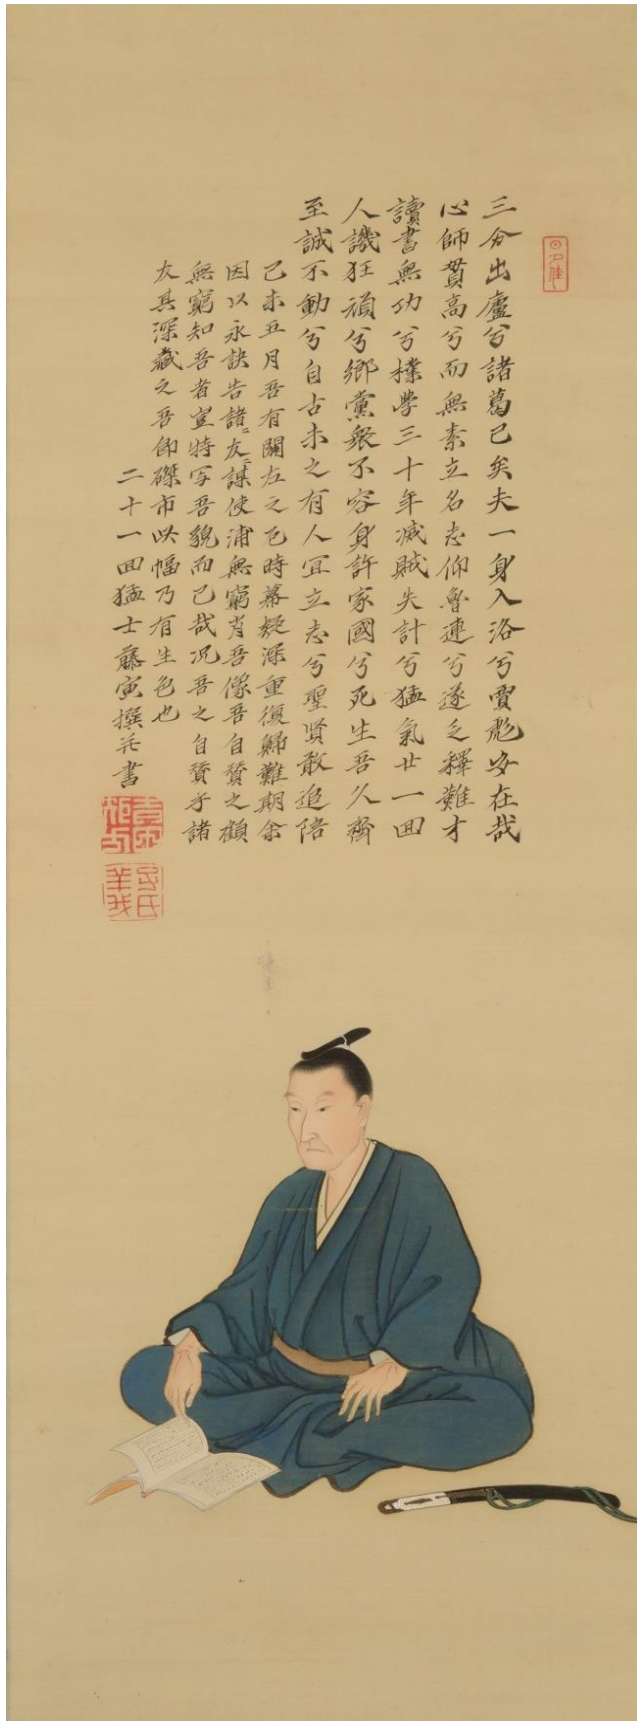 三分出廬兮諸葛已矣夫一身入洛兮賈彪安在哉
心師貫高兮而無素立名志仰魯連兮遂乏釋難才
讀書無功兮樸學三十年滅賊失計兮猛氣廿一回
人譏狂頑兮鄉黨衆不容身許家國兮死生吾久齊
至誠不動兮自古未之有人宜立志兮聖賢敢追陪
己未五月吾有關左之厄時幕疑深重復歸難期余
因以永訣告諸〻友〻謀使浦無窮肖吾像吾自賛之顧
無窮知吾者豈特写吾貌而已哉况吾之自賛乎諸
友其深藏之吾即磔市此幅乃有生色也
二十一回猛士藤寅撰并書